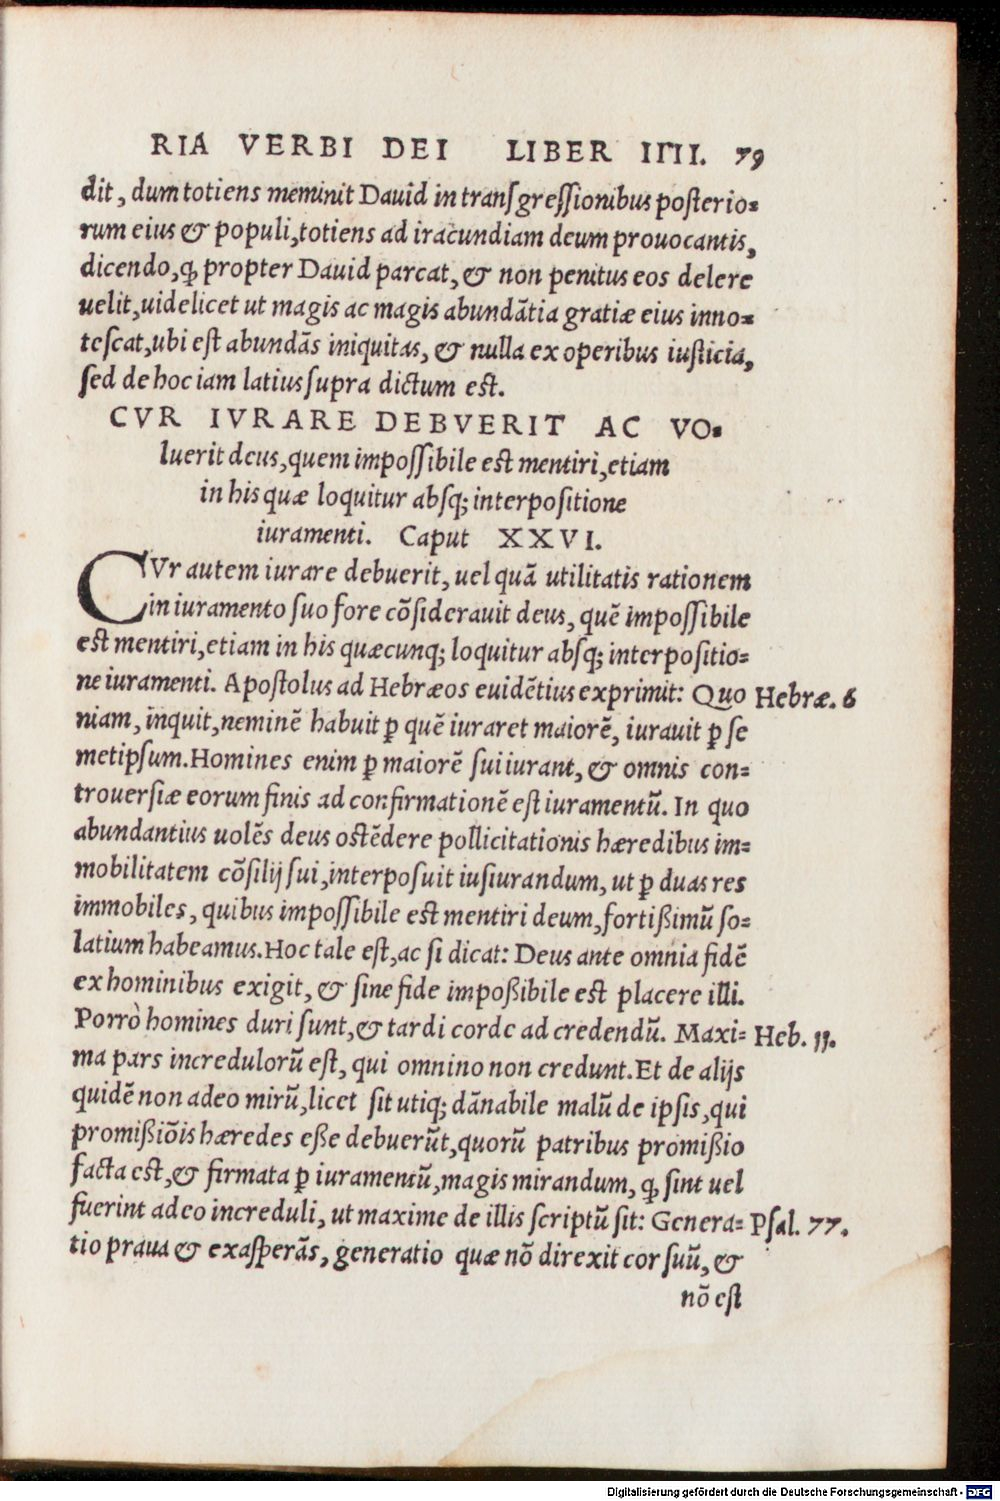 RIA VERBI DEI LIBER IIII. 79
dit, dum totiens meminit Dauid in transgressionibus posterio=
rum eius & populi, totiens ad iracundiam deum prouocantis,
dicendo, ꝙ propter Dauid parcat, & non penitus eos delere
uelit, uidelicet ut magis ac magis abundãtia gratiæ eius inno=
tescat, ubi est abundãs iniquitas, & nulla ex operibus iusticia,
sed de hoc iam latius supra dictum est.
CVR IVRARE DEBVERIT AC VO=
luerit deus, quem impossibile est mentiri, etiam
in his quæ loquitur absq; interpositione
iuramenti. Caput XXVI.
CVr autem iurare debuerit, uel quã utilitatis rationem
in iuramento suo fore cõsiderauit deus, quẽ impossibile
est mentiri, etiam in his quæcunq; loquitur absq; interpositio=
ne iuramenti. Apostolus ad Hebræos euidẽtius exprimit: Quo Hebræ. 6
niam, inquit, neminẽ habuit ꝑ quẽ iuraret maiorẽ, iurauit ꝑ se
metipsum. Homines enim ꝑ maiorẽ sui iurant, & omnis con=
trouersiæ eorum finis ad confirmationẽ est iuramentũ. In quo
abundantius uolẽs deus ostẽdere pollicitationis hæredibus im=
mobilitatem cõsilij sui, interposuit iusiurandum, ut ꝑ duas res
immobiles, quibus impossibile est mentiri deum, fortißimũ so=
latium habeamus. Hoc tale est, ac si dicat: Deus ante omnia fidẽ
ex hominibus exigit, & sine fide impoßibile est placere illi.
Porrò homines duri sunt, & tardi corde ad credendũ. Maxi= Heb. 11.
ma pars incredulorũ est, qui omnino non credunt. Et de alijs
quidẽ non adeo mirũ, licet sit utiq; dãnabile malũ de ipsis, qui
promißiõis hæredes eße debuerũt, quorũ patribus promißio
facta est, & firmata ꝑ iuramentũ, magis mirandum, ꝙ sint uel
fuerint adeo increduli, ut maxime de illis scriptũ sit: Genera= Psal. 77.
tio praua & exasperãs, generatio quæ nõ direxit cor suũ, &
nõ est
Digitalisierung gefördert durch die Deutsche Forschungsgemeinschaft - DFG